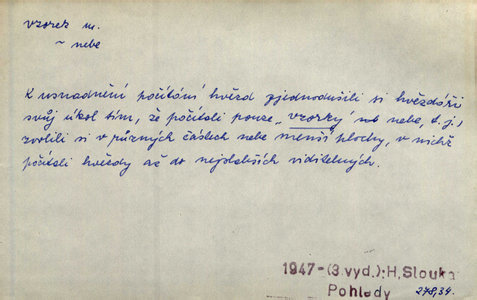 vzorek m.
~ nebe
K usnadnění počítání hvězd zjednodušili si hvězdáři
svůj úkol tím, že počítali pouze „vzorky" nebe, t. j.,
zvolili si v různých částech nebe menší plochy, v nichž
počítali hvězdy až do nejslabších viditelných.
1947-(3.vyd.):H,Slouka
Pohledy 278,34.